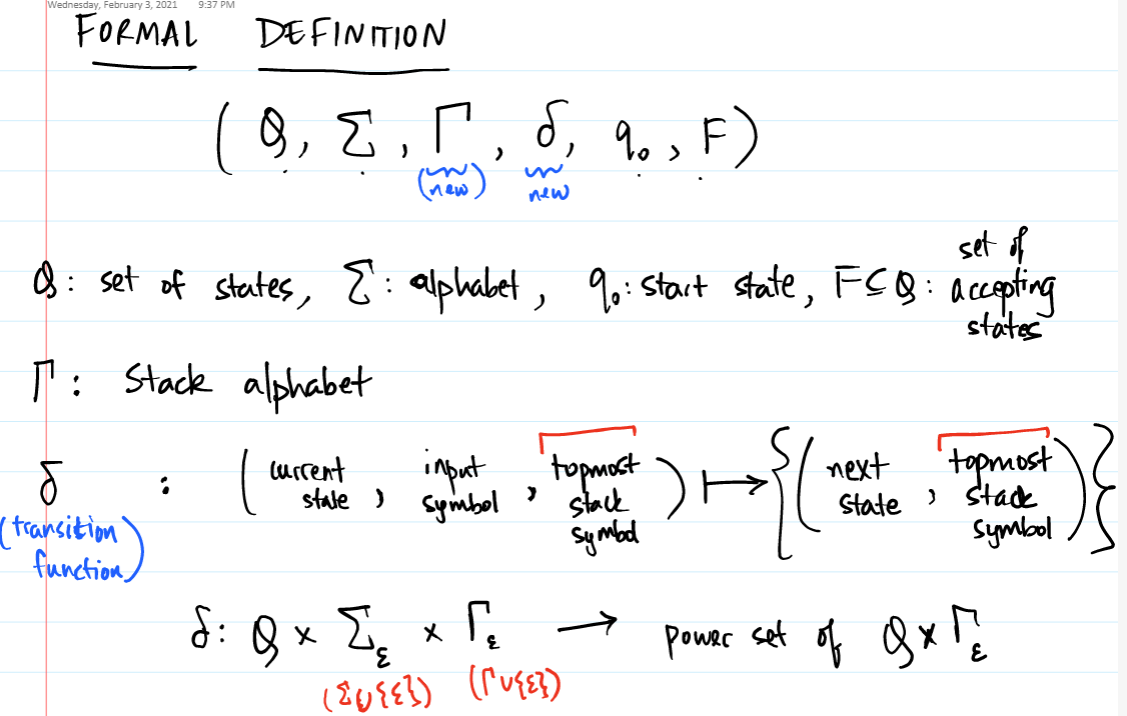 Wednesday, February 3, 2021 9:37 PM
FORMAL DEFINITION
(Q, Σ, Γ, δ, q₀, F)
(new) new
Q: set of states, Σ: alphabet, q₀: start state, F⊆Q: set of accepting states
Γ: Stack alphabet
δ : (current state, input symbol, topmost stack symbol) ↦ {(next state, topmost stack symbol)}
(transition function)
δ: Q × Σ_ε × Γ_ε → power set of Q×Γ_ε
(Σ∪{ε}) (Γ∪{ε})